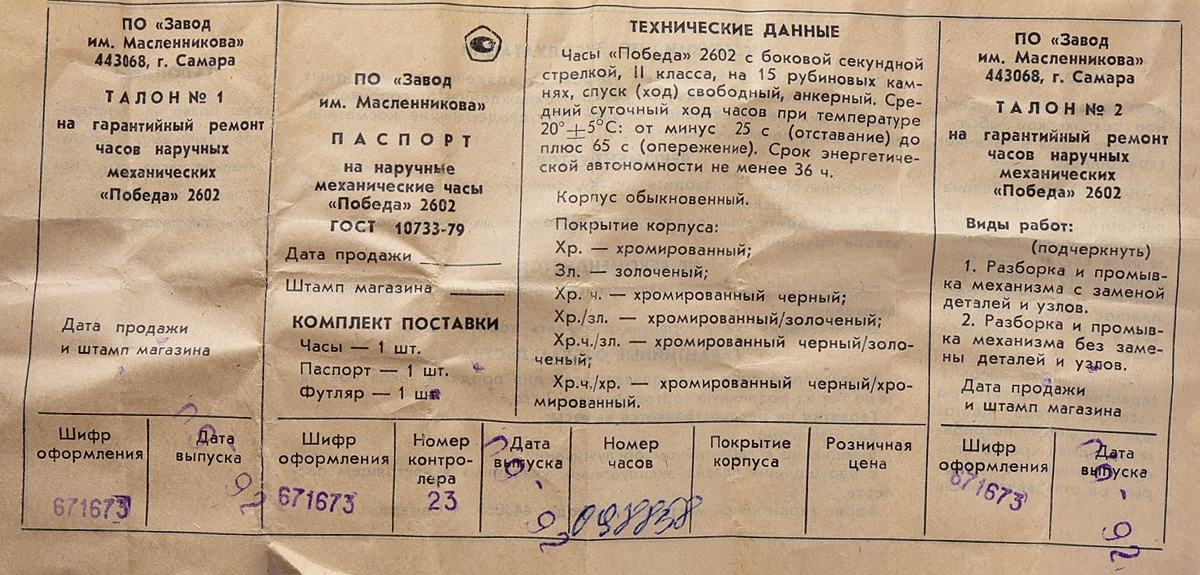 ПО «Завод
им. Масленникова»
443068, г. Самара
ТАЛОН № 1
на гарантийный ремонт
часов наручных
механических
«Победа» 2602
Дата продажи
и штамп магазина
Шифр
оформления
671673
Дата
выпуска
ПО «Завод
им. Масленникова»
ПАСПОРТ
на наручные
механические часы
«Победа» 2602
ГОСТ 10733-79
Дата продажи
Штамп магазина
КОМПЛЕКТ ПОСТАВКИ
Часы — 1 шт.
Паспорт — 1 шт.
Футляр — 1 шт.
Шифр
оформления
671673
Номер
контро-
лера
23
Дата
выпуска
ТЕХНИЧЕСКИЕ ДАННЫЕ
Часы «Победа» 2602 с боковой секундной
стрелкой, II класса, на 15 рубиновых кам-
нях, спуск (ход) свободный, анкерный. Сре-
дний суточный ход часов при температуре
20°±5°С: от минус 25 с (отставание) до
плюс 65 с (опережение). Срок энергетиче-
ской автономности не менее 36 ч.
Корпус обыкновенный.
Покрытие корпуса:
Хр. — хромированный;
Зл. — золоченый;
Хр. ч. — хромированный черный;
Хр./зл. — хромированный/золоченый;
Хр.ч./зл. — хромированный черный/золо-
ченый;
Хр.ч./хр. — хромированный черный/хро-
мированный.
Номер
часов
Покрытие
корпуса
Розничная
цена
ПО «Завод
им. Масленникова»
443068, г. Самара
ТАЛОН № 2
на гарантийный ремонт
часов наручных
механических
«Победа» 2602
Виды работ:
(подчеркнуть)
1. Разборка и промыв-
ка механизма с заменой
деталей и узлов.
2. Разборка и промыв-
ка механизма без заме-
ны деталей и узлов.
Дата продажи
и штамп магазина
Шифр
оформления
671673
Дата
выпуска